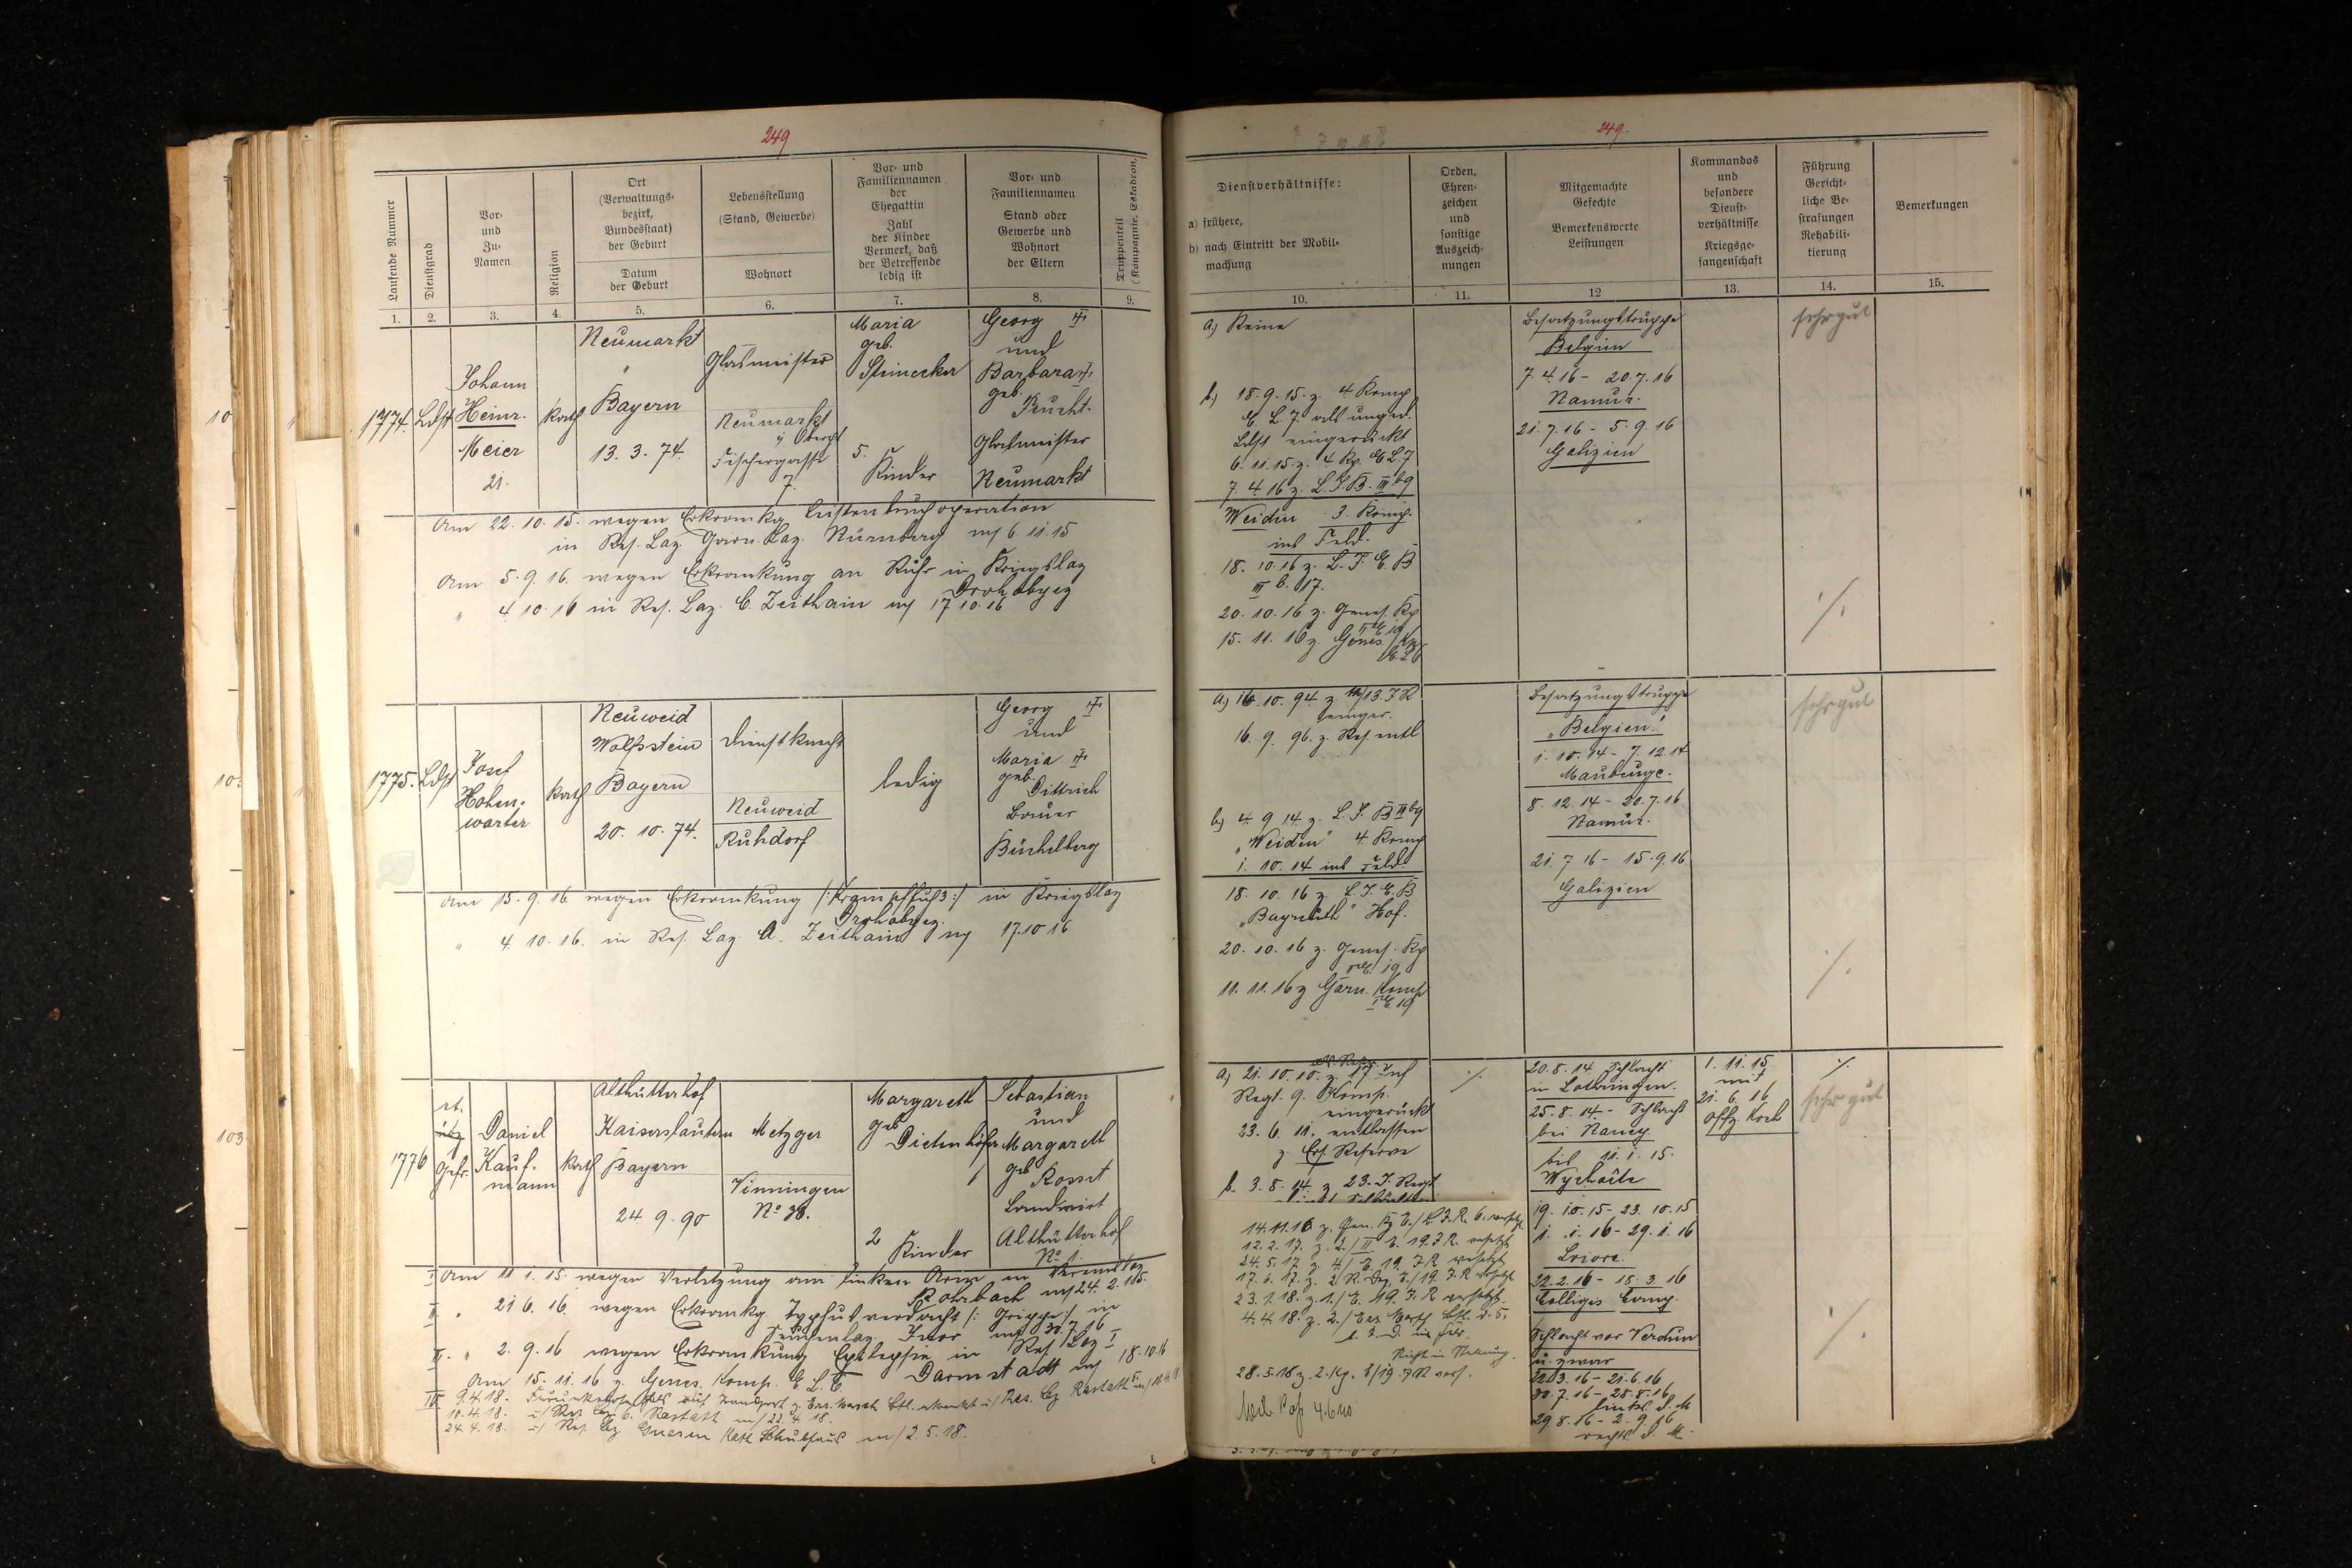 249
Laufende Nummer
Dienstgrad
Vor-
und
Zu-
Namen
Religion
Ort
(Verwaltungs-
bezirk,
Bundesstaat)
der Geburt
Datum
der Geburt
Lebensstellung
(Stand, Gewerbe)
Wohnort
Vor- und
Familiennamen
der
Ehegattin
Zahl
der Kinder
Vermerk, daß
der Betreffende
ledig ist
Vor- und
Familiennamen
Stand oder
Gewerbe und
Wohnort
der Eltern
Truppenteil
(Kompagnie, Eskadron,
1. 2. 3. 4. 5. 6. 7. 8. 9.
1774.
Ldst
Johann
Heinr.
Meier
21.
kath
Neumarkt
"
Bayern
13. 3. 74.
Glasmeister
Neumarkt
Fischergasse
7.
Maria
geb.
Steinecker
5.
Kinder
Georg
und
Barbara
geb.
Feucht.
Glasmeister
Neumarkt
Am 22. 10. 15. wegen Erkrankg Leistenbruchoperation
in Res. Laz. Garn. Laz. Nürnberg 6. 11. 15
Am 5. 9. 16. wegen Erkrankung an Ruhr in Kriegslaz
Drohobycz
" 4. 10. 16 in Res. Laz. C. Zeithain 17. 10. 16
1775.
Ldst
Josef
Hohen-
warter
kath
Neuweid
Wolfstein
Bayern
20. 10. 74.
Dienstknecht
Neuweid
Ruhdorf
ledig
Georg
und
Maria
geb.
Dittrich
Bauer
Büchelberg
Am 15. 9. 16 wegen Erkrankung in Kriegslaz
Drohobycz.
" 4. 10. 16. in Res. Laz. A. Zeithain 17. 10 16
1776
Gefr.
Daniel
Kauf-
mann
kath
Althütterhof
Kaiserslautern
Bayern
24. 9. 90
Metzger
Vinningen
No 38.
Margareth
geb
Dietenhöfer
2
Kinder
Sebastian
und
Margareth
geb
Kosset
Landwirt
Althütterhof
No 1.
I Am 11. 1. 15. wegen Verletzung am linken Arm in Vereinslaz
Rohrbach 24. 2. 15.
II. " 21 6. 16. wegen Erkrankg Typhusverdacht /: Grippe :/ in
Seuchenlaz. Inor 30. 7. 16
III. " 2. 9. 16 wegen Erkrankung Epilepsie in Res. Laz I
Darmstadt 18. 10. 16
Am 15. 11. 16 z. Genes. Komp. E. L. 6
IV 9. 4. 18. auf Transport z. Ers. Res. Laz Rastatt
10. 4. 18. Res. Laz 6. Rastatt 22. 4. 18.
24. 4. 18. Res. Laz Kath Schulhaus 2. 5. 18.
249.
Dienstverhältnisse:
a) frühere,
b) nach Eintritt der Mobil-
machung
Orden,
Ehren-
zeichen
und
sonstige
Auszeich-
nungen
Mitgemachte
Gefechte
Bemerkenswerte
Leistungen
Kommandos
und
besondere
Dienst-
verhältnisse
Kriegsge-
fangenschaft
Führung
Gericht-
liche Be-
strafungen
Rehabili-
tierung
Bemerkungen
10. 11. 12 13. 14. 15.
a) Keine
b) 18. 9. 15. z. 4 Komp
E. L. 7. als unged.
Ldst eingerückt
6. 11. 15. z. 4 Kp. E L 7
7. 4. 16 z. L. I. B. III b 9
Weiden 3. Komp.
ins Feld.
18. 10. 16 z. L. I. E. B
III B. 17.
20. 10. 16 z. Genes. Kp
15. 11. 16 z. Genes Kp
E. L 6
Besatzungstruppe
Belgien
7. 4. 16 - 20. 7. 16
Namur.
21. 7. 16 - 5. 9. 16
Galizien
sehr gut
./.
a) 16. 10. 94. z. 13. I R
einger.
16. 9. 96. z. Res. entl
b) 4. 9 14. z. L. I. B III b 9
„Weiden" 4. Komp
1. 10. 14 ins Feld
18. 10. 16 z. L. I. E. B
„Bayreuth" Hof.
20. 10. 16 z. Genes. Kp
11. 11. 16 z Garn. Komp
I E. 19
Besatzungstruppe
„Belgien".
1. 10. 14 - 7. 12. 14
Maubeuge.
8. 12. 14 - 20. 7. 16.
Namur.
21. 7 16 - 15. 9. 16.
Galizien
sehr gut
./.
a) 21. 10. 10. z. 17 Inf
Regt. 9. Komp.
eingerückt
23. 6. 11. entlassen
z. Ers. Reserve
b. 3. 8. 14. z 23. I. Regt
14. 11. 16 z. Gen. Kp E./ L. I. R. 6. versetzt.
12. 2. 17. z. 2./ II E. 19. I R. versetzt
24. 5. 17 z. 4./ E. 19. I R versetzt
17. 6. 17. z. 2 R. E./ 19. I. R versetzt
23. 1. 18. z. 1./ E. 19. I. R versetzt.
4. 4. 18. z. 2./ Ers.
28. 5. 18 z. 2. Kp. E/19. I R vers.
./.
20. 8. 14. Schlacht
in Lothringen.
25. 8. 14. - Schlacht
bei Nancy
bis 11. 1. 15.
Wyschaite
19. 10. 15 - 23. 10. 15
1. 1. 16 - 29. 1. 16
22. 2. 16 - 18. 3. 16
Schlacht vor Verdun
u. zwar
22. 3. 16 - 21. 6. 16
30. 7. 16 - 28. 8. 16
links d. M
29. 8. 16 - 2. 9. 16
rechts d. M.
1. 11. 15
mit
21. 6. 16
Offz. Koch
./.
sehr gut
./.